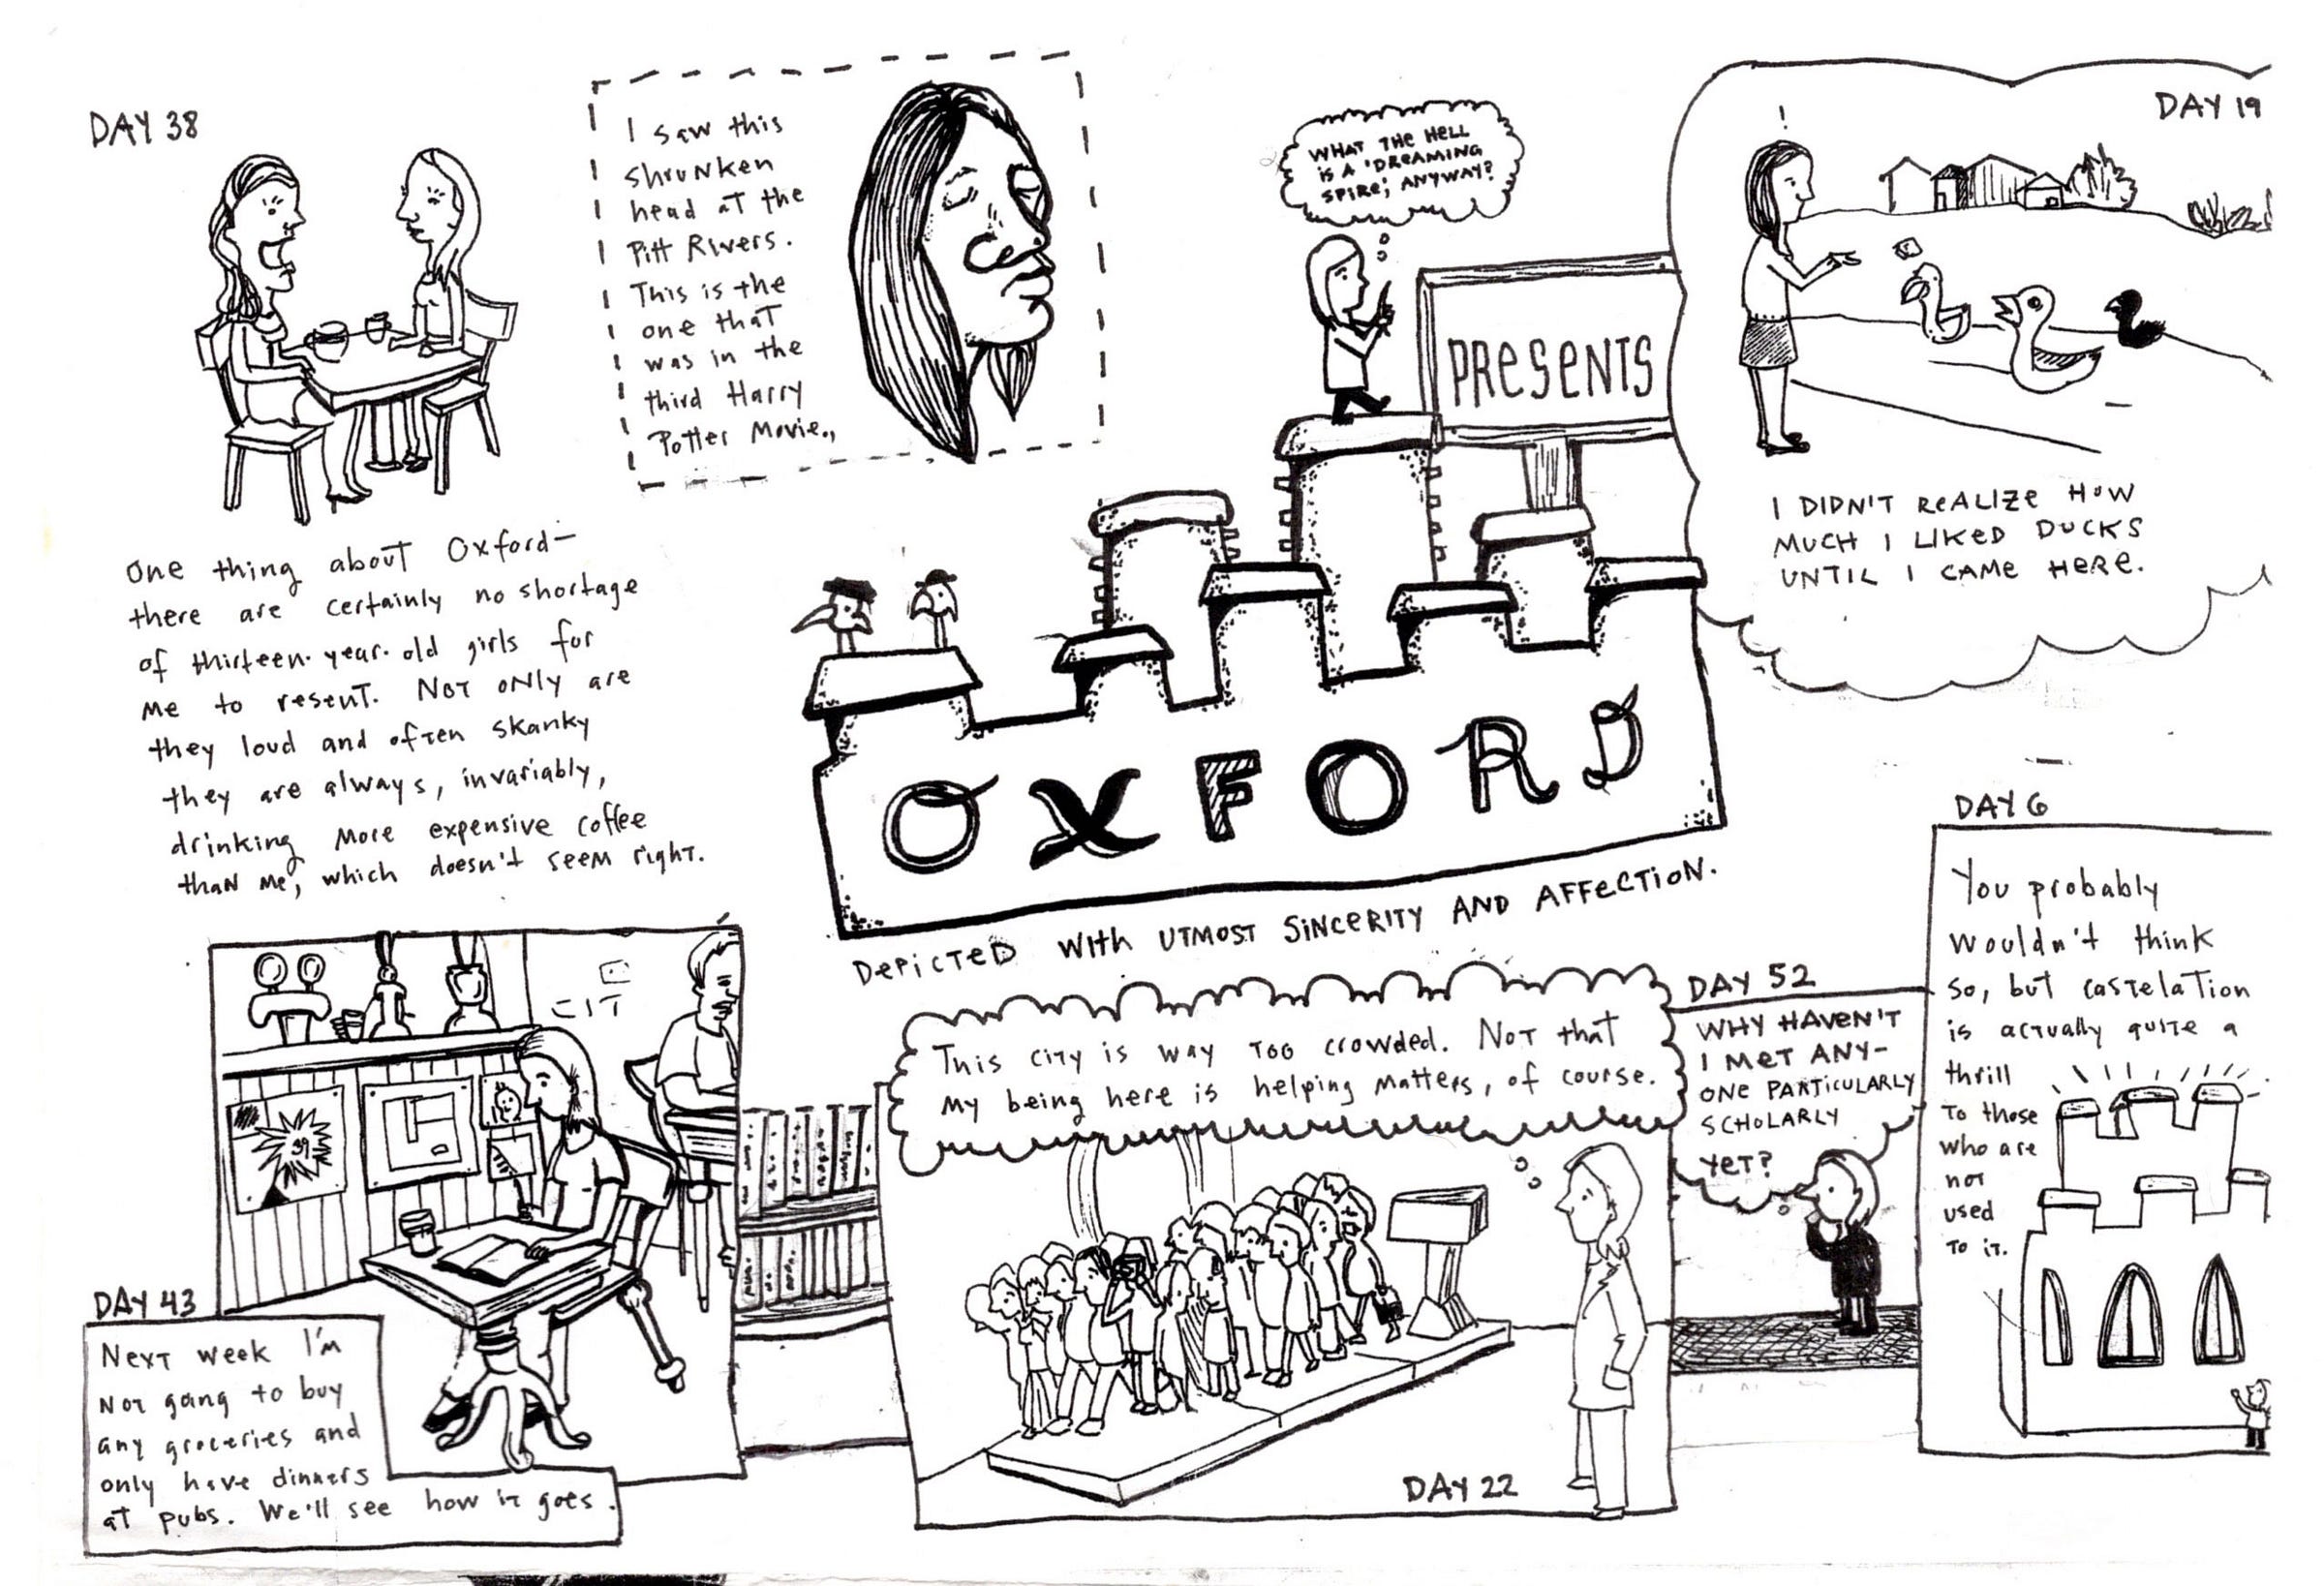 DAY 38
One thing about Oxford—
there are certainly no shortage
of thirteen-year-old girls for
me to resent. Not only are
they loud and often skanky
they are always, invariably,
drinking more expensive coffee
than me, which doesn't seem right.
I saw this
shrunken
head at the
Pitt Rivers.
This is the
one that
was in the
third Harry
Potter Movie.,
WHAT THE HELL
is A 'DREAMING
SPIRE', ANYWAY?
PRESENTS
OXFORD
DEPICTED WITH UTMOST SINCERITY AND AFFECTION.
DAY 19
!
I DIDN'T REALIZE HOW
MUCH I LIKED DUCKS
UNTIL I CAME HERE.
DAY 43
CIT
99
Next week I'm
not gong to buy
any groceries and
only have dinners
at pubs. We'll see how it goes.
This city is way too crowded. Not that
my being here is helping matters, of course.
DAY 22
DAY 52
WHY HAVEN'T
I MET ANY-
ONE PARTICULARLY
SCHOLARLY
YET?
DAY 6
You probably
wouldn't think
so, but castelation
is actually quite a
thrill
to those
who are
not
used
to it.